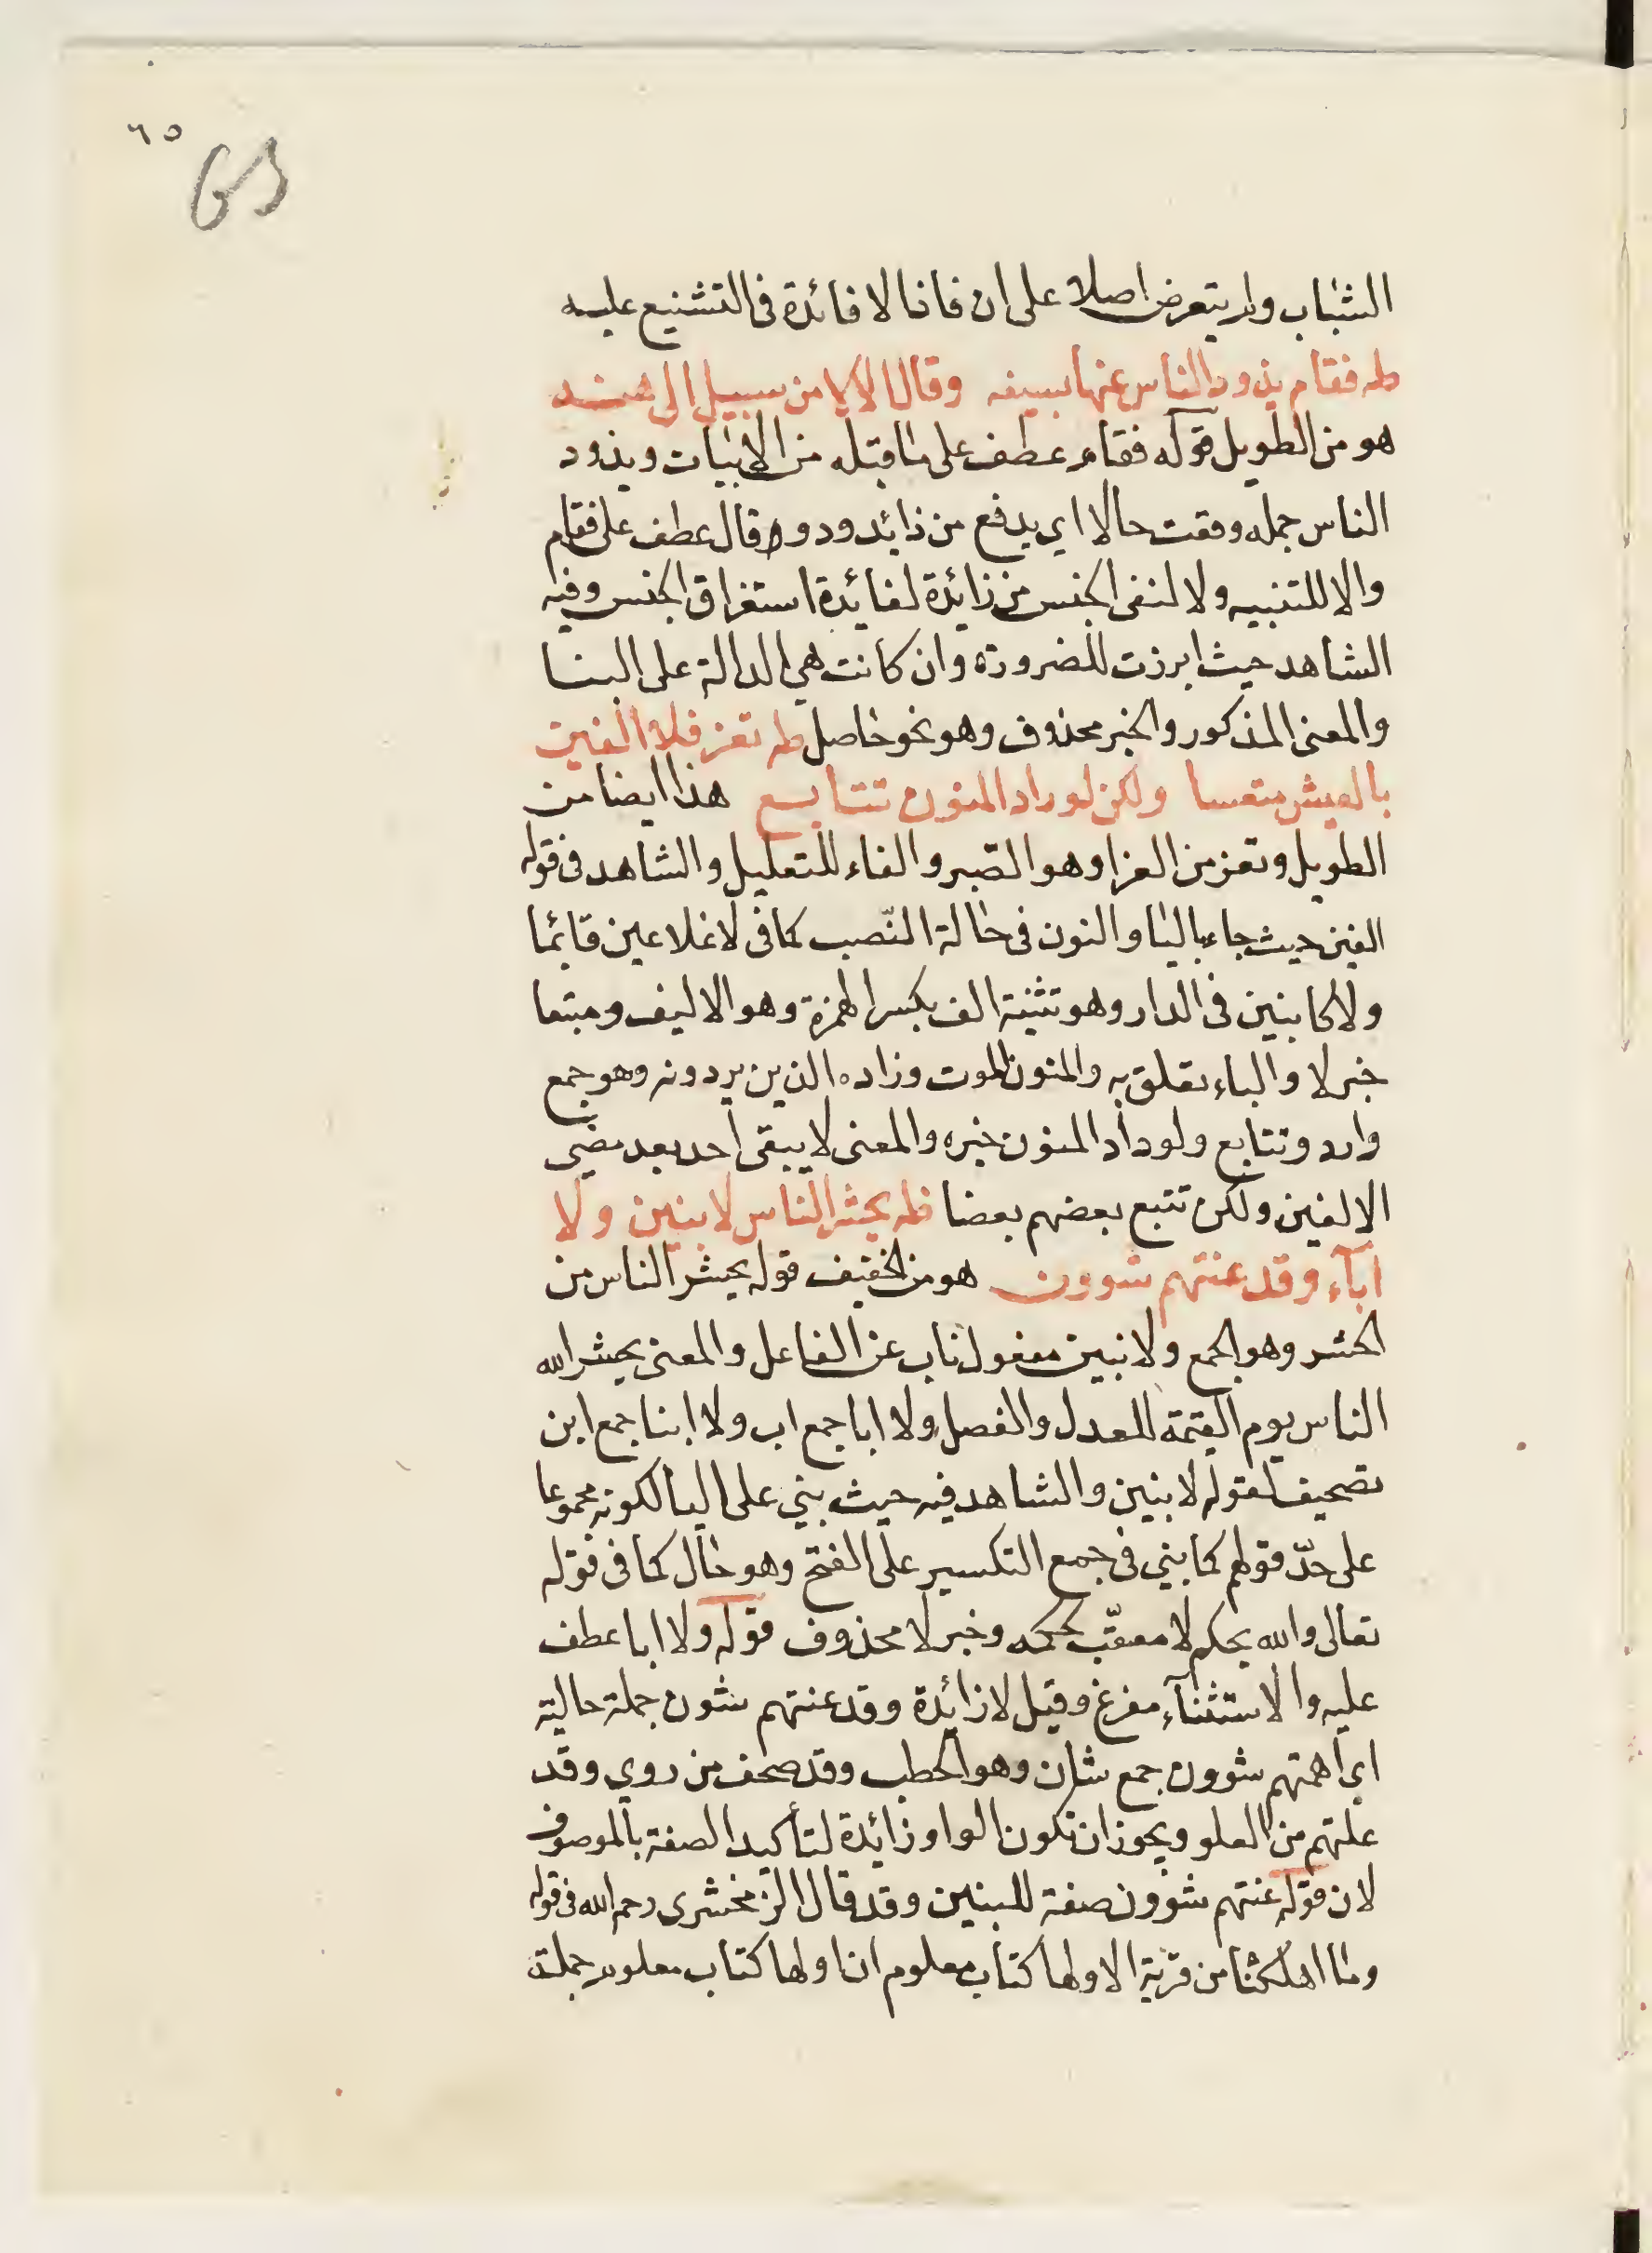 ٦٥
65
الشباب ولم يتعرض اصلا على ان فانا لا فائدة فى التشنيع عليه
طه فقام يذود الناس عنها بسيفه وقال الا لا من سبيل الى هند
هو من الطويل قوله فقام عطف على ما قبله من الابيات ويذود
الناس جمله وقعت حالا اي يدفع من ذائد ودود وقال عطف على فقام
والا للتنبيه ولا لنفى الجنس من زائدة لفائدة استغراق الجنس وفيه
الشاهد حيث ابرزت للضرورة وان كانت هي الدالة على البنا
والمعنى المذكور والخبر محذوف وهو نحو حاصل طه تعز فلا الفين
بالعيش متعسا ولكن لوراد المنون تتابع هذا ايضا من
الطويل وتعز من العزا وهو الصّبر والفاء للتعليل والشاهد فى قوله
الفين حيث جاء باليا والنون فى حالة النّصب كما فى لا غلامين قائما
ولا كابنين فى الدار وهو تثنية الف بكسر الهمزة وهو الاليف ومتعا
خبر لا والباء تعلق به والمنون الموت وراده الذين يردونه وهو جمع
وارد وتتابع ولوراد المنون خبره والمعنى لا يبقى احد بعد مضى
الالفين ولكن تتبع بعضهم بعضا طه يحشر الناس لا بنين ولا
اٰبآء وقد عنتهم شوون هو من الخفيف قوله يحشر الناس من
الحشر وهو الجمع ولا بنين مفعول ناب عن الفاعل والمعنى يحشر الله
الناس يوم القيمة للعدل والفصل ولا ابا جمع اب ولا ابنا جمع ابن
تصحيف لقوله لا بنين والشاهد فيه حيث بني على اليا لكونه مجموعا
على حدّ قولهم كما بني فى جمع التكسير على الفتح وهو حال كما فى قوله
تعالى والله يحكم لا معقّب لحكمه وخبر لا محذوف قوله ولا ابا عطف
عليه والاستثنآء مفرغ وقيل لا زائدة وقد عنتهم شون جملة حالية
اي اهمتهم شوون جمع شان وهو الخطب وقد صحف من روي وقد
علتهم من العلو ويجوز ان تكون الواو زائدة لتأكيد الصفة بالموصوف
لان قوله عنتهم شوون صفة للبنين وقد قال الزمخشرى رحمه الله فى قوله
وما اهلكنا من قرية الا ولها كتاب معلوم ان ولها كتاب معلوم جملة